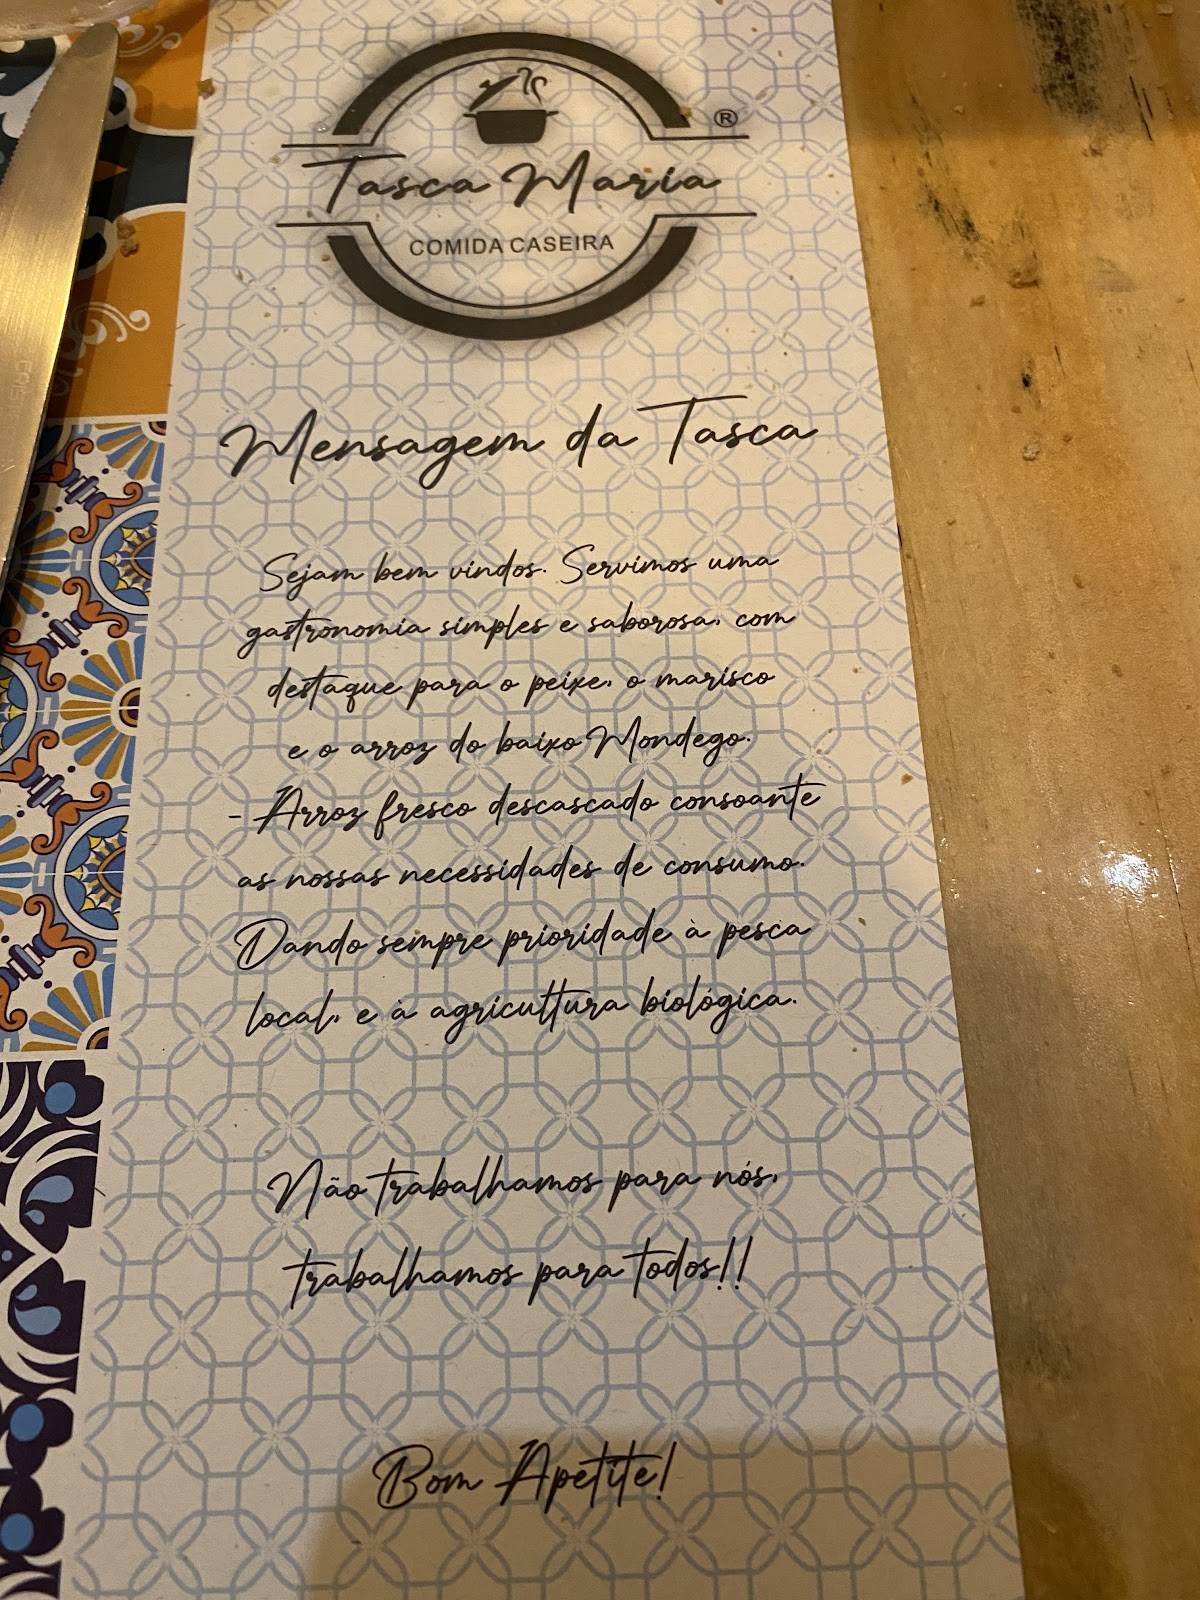 ®
Tasca Maria
COMIDA CASEIRA
Mensagem da Tasca
Sejam bem vindos. Servimos uma
gastronomia simples e saborosa, com
destaque para o peixe, o marisco
e o arroz do baixo Mondego.
- Arroz fresco descascado consoante
as nossas necessidades de consumo.
Dando sempre prioridade à pesca
local, e à agricultura biológica.
Não trabalhamos para nós,
trabalhamos para todos!!
Bom Apetite!